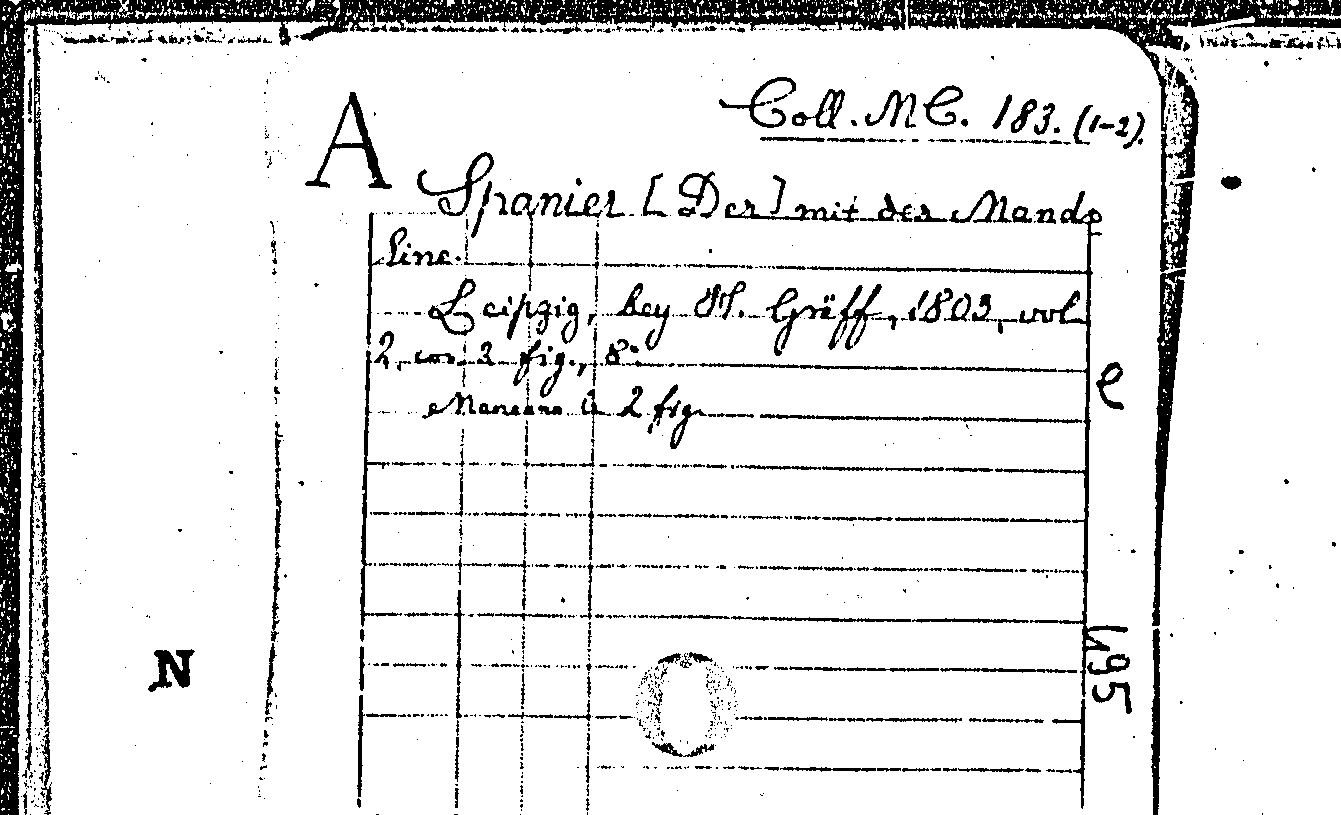 A
Coll. M C. 183. (1-2).
Spanier [Der] mit der Mando
line.
Leipzig, bey H. Gräff, 1803, vol
2, con 2 fig., 8º
Mancano le 2 fig.
e
495
N